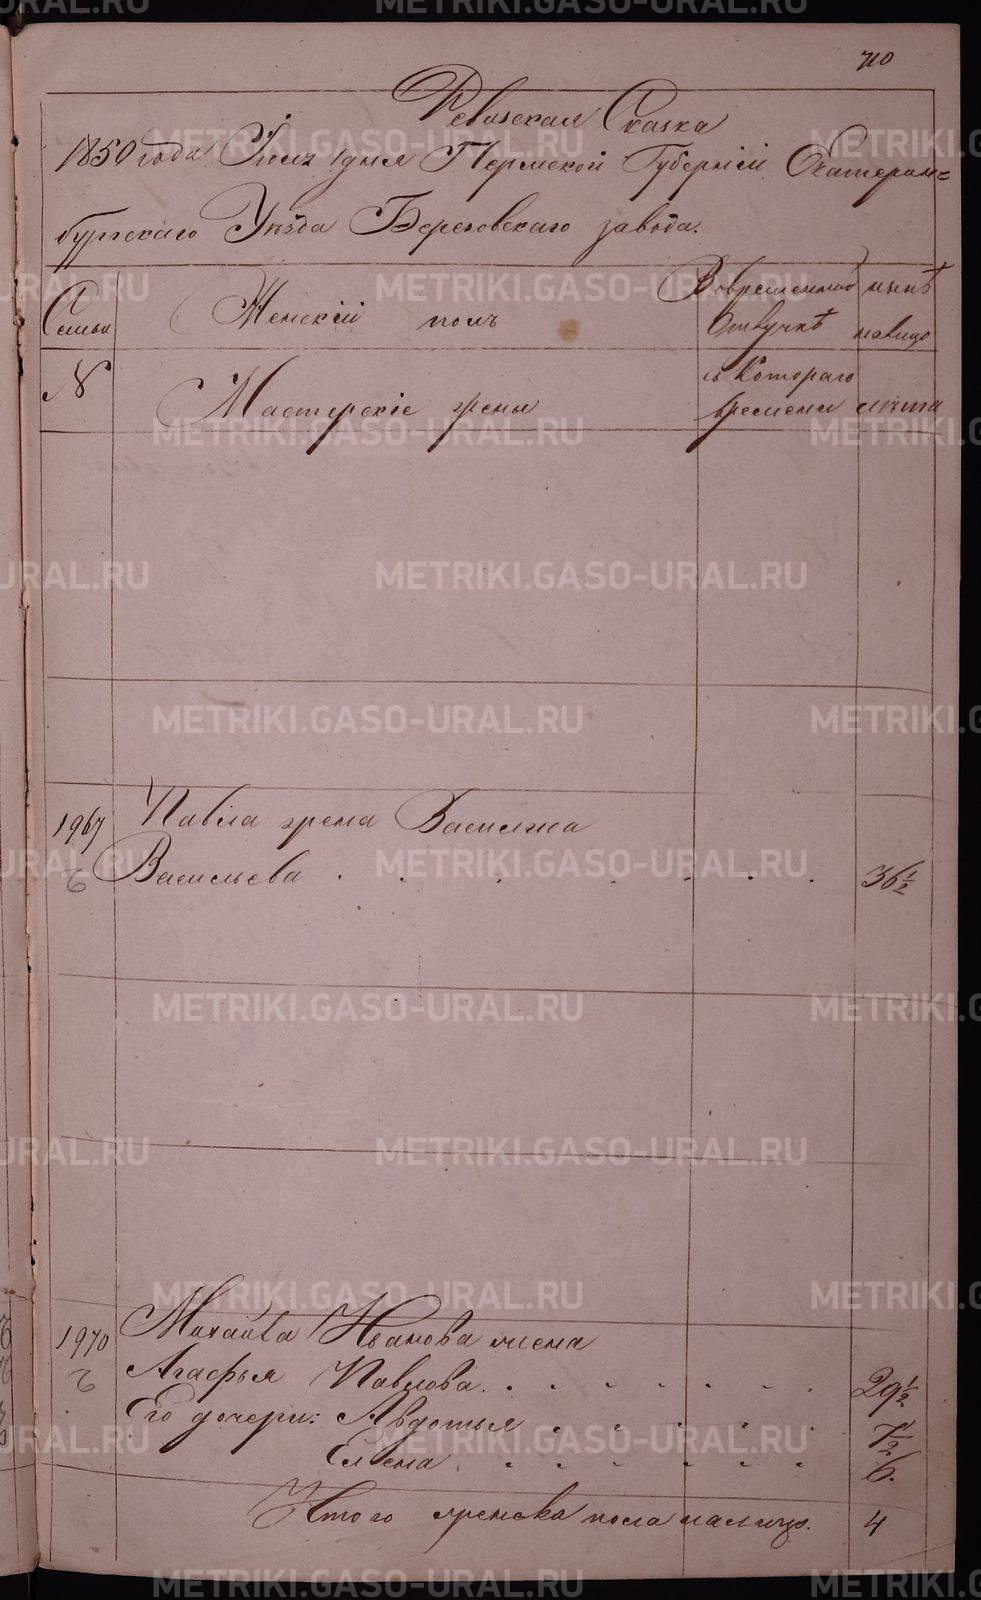 710
Ревизская Сказка
1850 года Іюля 1 дня Пермской Губерніи Екатерин=
бургскаго Уѣзда Березовскаго завода.
Семьи
Женскій полъ
Вовременной Отлучкѣ
нынѣ налицо
N
Мастерскіе жены
съ Котораго времени
лѣта
1967 Павла жена Василиса
Васильева . . . . . . . 36 1/2
1970 Михаила Иванова жена
Агафья Павлова . . . . . . 29 1/2
Его дочери: Авдотья . . . . .
Елена . . . . . . 6.
Итого женска пола налицо. 4
METRIKI.GASO-URAL.RU